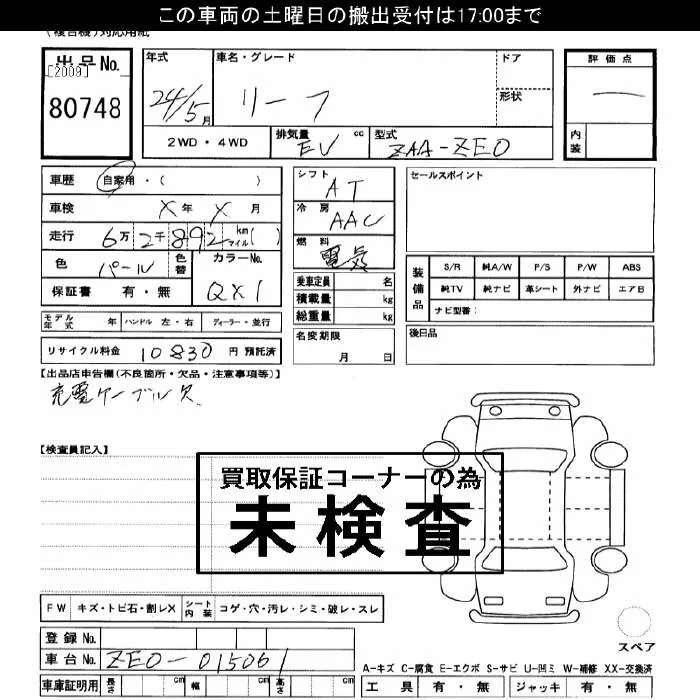 この車両の土曜日の搬出受付は17:00まで
(複合機)対応用紙
出品No.
[2009]
80748
年式 車名・グレード ドア
24/5月 リーフ 形状
2WD・4WD 排気量 EV cc 型式 ZAA-ZE0
評価点
—
内装
車歴 自家用・( )
車検 X年 X月
走行 6万2千892 km マイル( )
色 パール 色替 カラーNo. QX1
保証書 有・無
モデル年式 年 ハンドル 左・右 ディーラー・並行
リサイクル料金 10830 円 預託済
シフト AT
冷房 AAC
燃料 電気
乗車定員 名
積載量 kg
総重量 kg
名変期限
月 日
セールスポイント
装備品 S/R 純A/W P/S P/W ABS
純TV 純ナビ 革シート 外ナビ エアB
ナビ型番:
後日品
【出品店申告欄(不良箇所・欠品・注意事項等)】
充電ケーブル欠
【検査員記入】
買取保証コーナーの為
未検査
FW キズ・トビ石・割レX シート内装 コゲ・穴・汚レ・シミ・破レ・スレ
スペア
登録No.
車台No. ZE0-015061
A-キズ C-腐食 E-エクボ S-サビ U-凹ミ W-補修 XX-交換済
車庫証明用 長さ cm 幅 cm 高さ cm
工具 有・無 ジャッキ 有・無